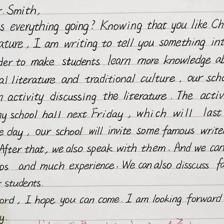 Smith,
s everything going? Knowing that you like Ch
ature, I am writing to tell you something int
der to make students learn more knowledge ab
al literature and traditional culture, our scho
n activity discussing the literature. The activ
y school hall next Friday, which will last
e day, our school will invite some famous write
After that, we also speak with them. And we can
os and much experience. We can also disscuss fo
r students.
ord, I hope you can come. I am looking forward
y.